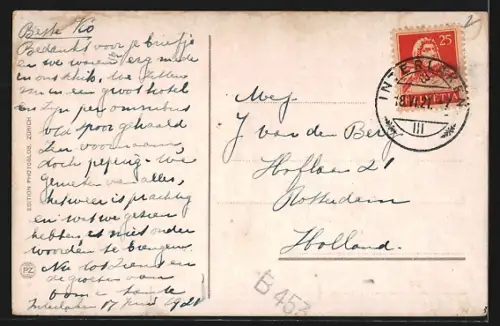 Beste Ko
Bedankt voor je briefje
en we waren er erg mede
in ons schik, we zitten
in een groot hotel
en zijn per omnibus
v/d spoor gehaald
zeer voornaam,
doch pefeng. We
genieten van alles,
het weer is prachtig
en wat we gezien
hebben is niet onder
woorden te brengen.
Nu tot ziens en
de groeten van
oom en tante
Interlaken 17 Juni 1921
EDITION PHOTOGLOB, ZÜRICH
PZ
25
HELVETIA
INTERLAKEN
18.VI.21.
III
Mej
J van den Berg
Hoflaan 21
Rotterdam
Holland.
B 453